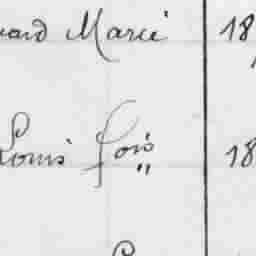 uard Marie 18
Louis fois 18
"